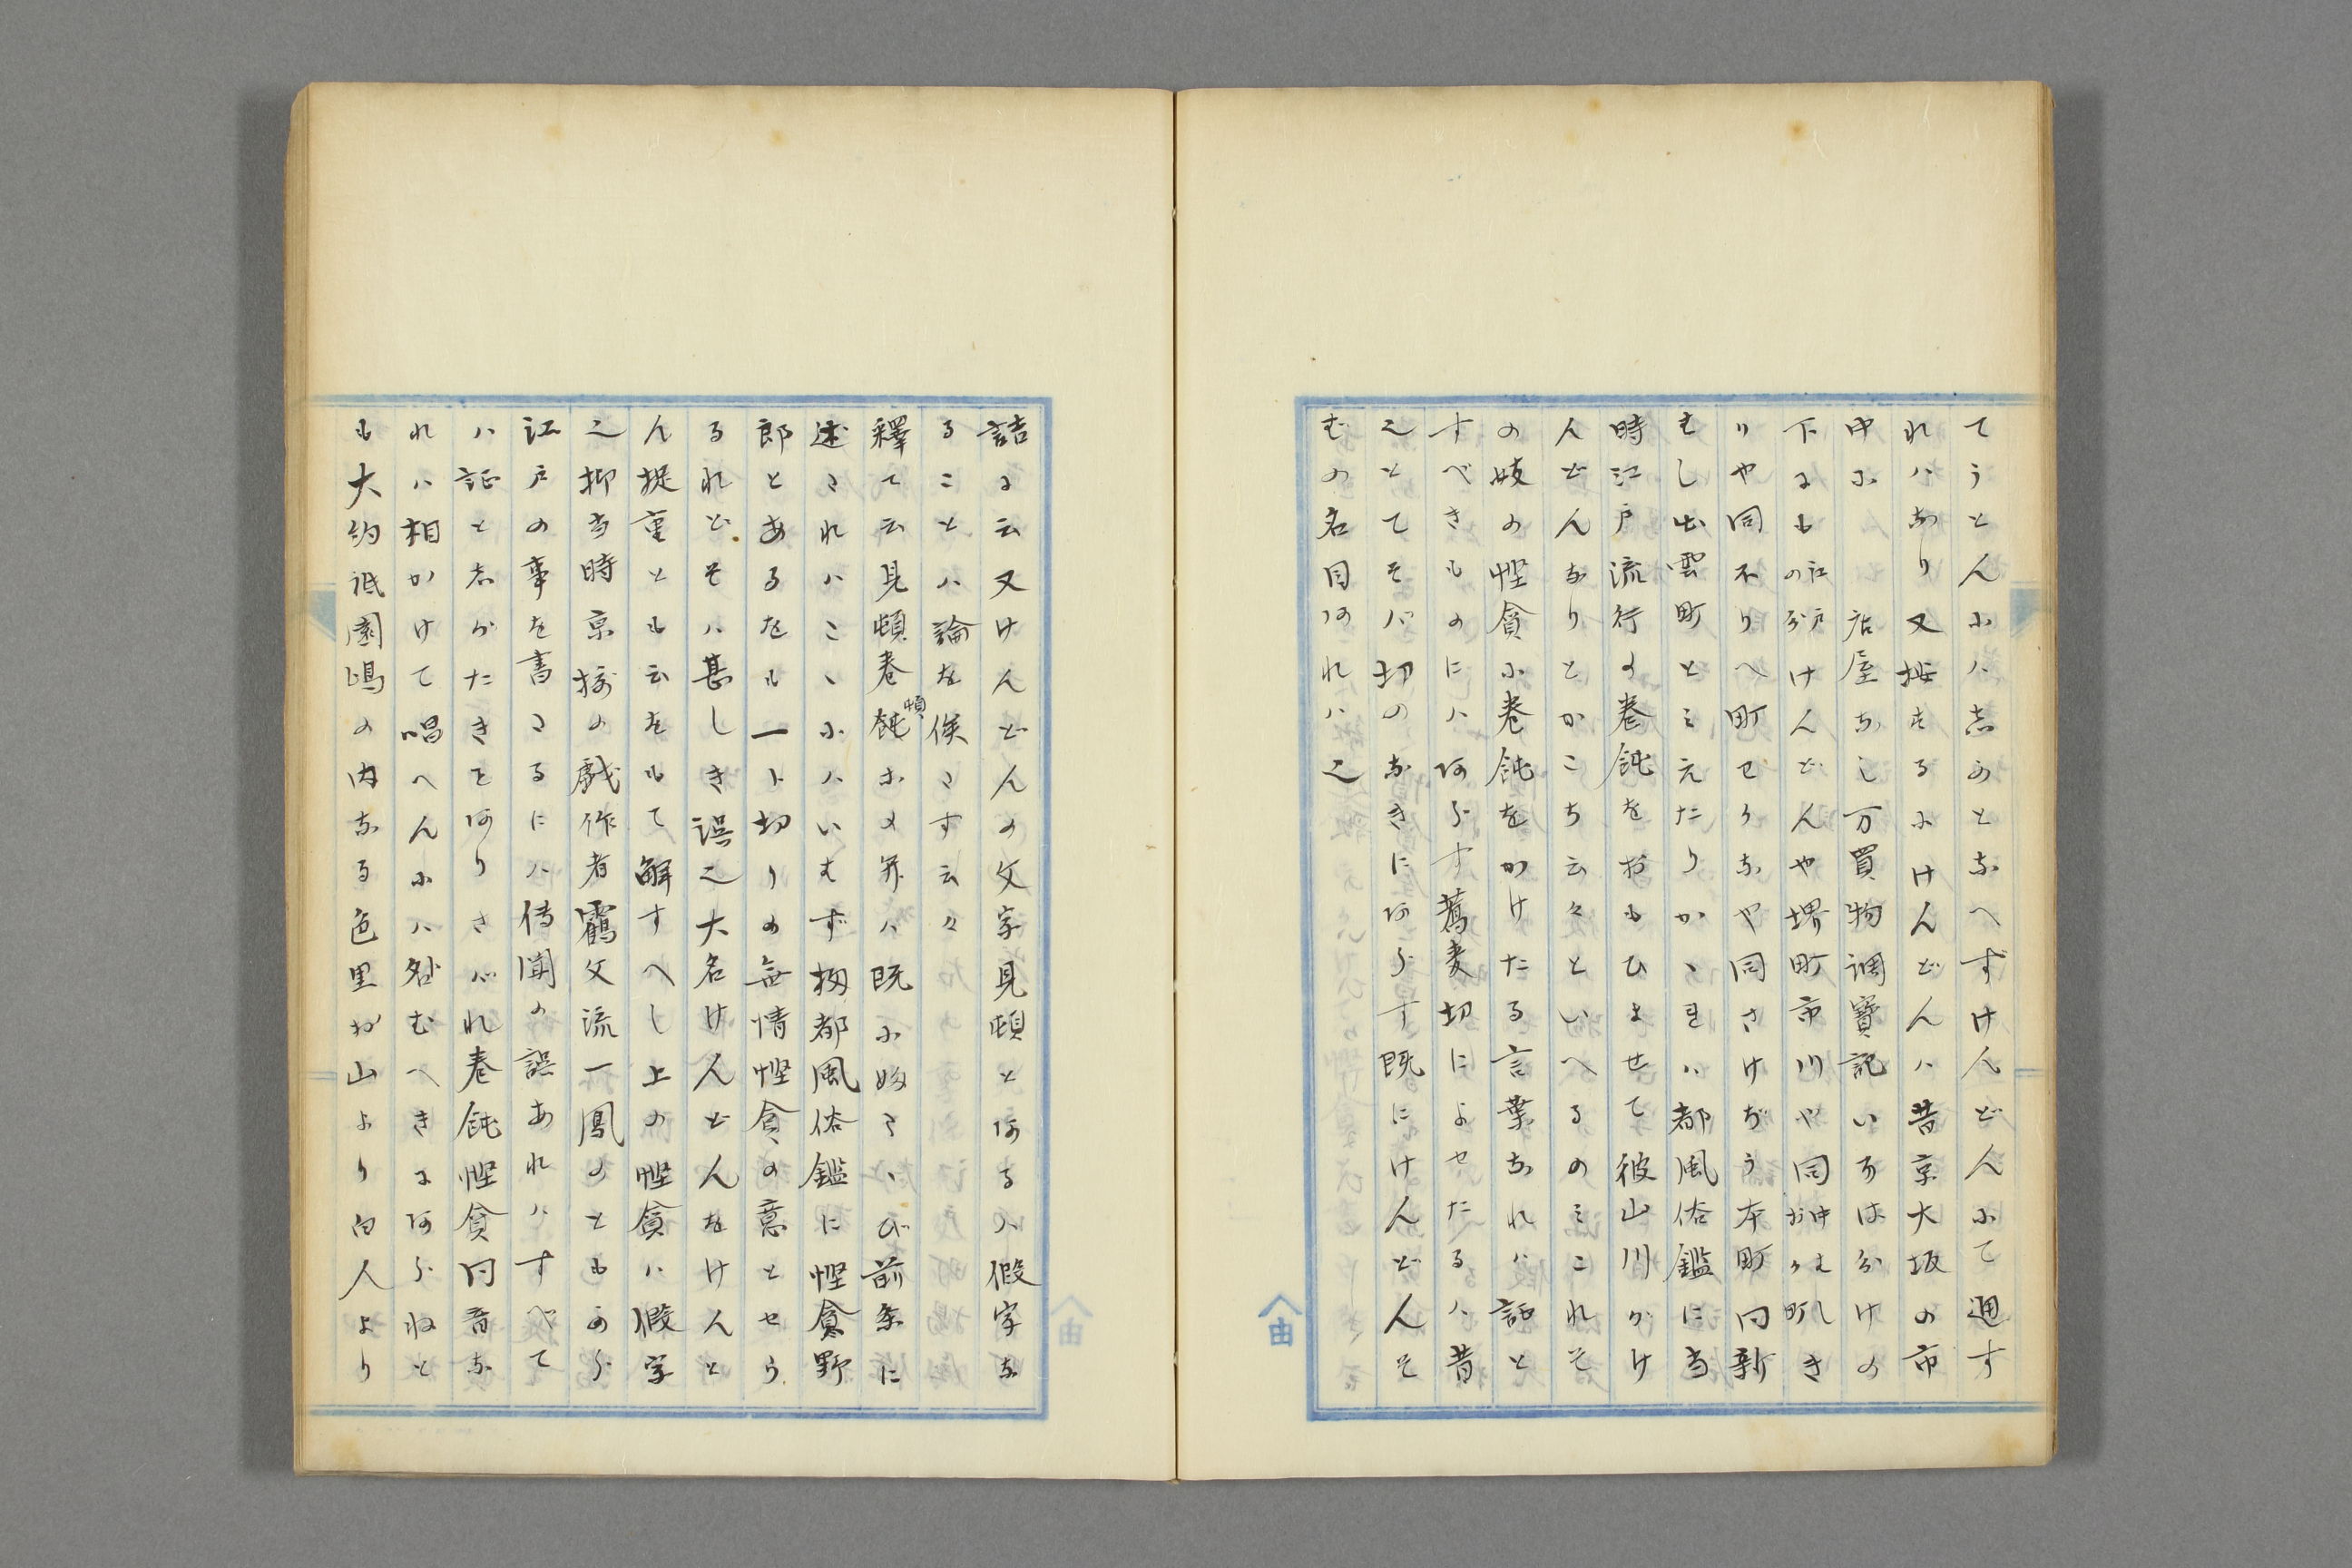 てうとんにハ志のとなへずけ人どん尓て通す
れハなり又按するにけんどんハ昔京大坂の市
中尓店屋なし万買物調寳記いろはわけの
下にも江戸のけんどんや堺町市川や同中むしき
りや同不りへ町せうなや同さけぢう本町同新
むし出雲町とミえたりかゝれハ都風俗鑑に当
時江戸流行の巻飩をおもひよせて彼山川がけ
んどんなりとかこち云々といへるのミこれそ
の妓の慳貪尓巻飩をかけたる言葉なれハ語と
すべきものにハあらす蕎麦切によせたるハ昔
之とてそバ切のなきにあらす既にけんどんそ
むの名目あれハ之
詰に云又けんどんの文字見頓とあるハ假字な
ることハ論を俟さす云々
釋て云見頓巻飩頓ホの弁ハ既に好さゝび前条に
述されハこゝ尓ハいはず扨都風俗鑑に慳貪野
郎とあるをも一ト切りの無情慳貪の意とせら
るれどそハ甚しき誤之大名けんどんをけんと
ん提重とも云をもて解すへし上の慳貪ハ假字
之抑当時京搖の戯作者靏文流一鳳のともあら
江戸の事を書さるにハ傳聞の誤あれハすべて
ハ証と志がたきをありさバれ巻飩慳貪同音な
れハ相かけて唱へんにハ改むべきにあらねと
も大約祇園嶋の内なる色里お山より白人より